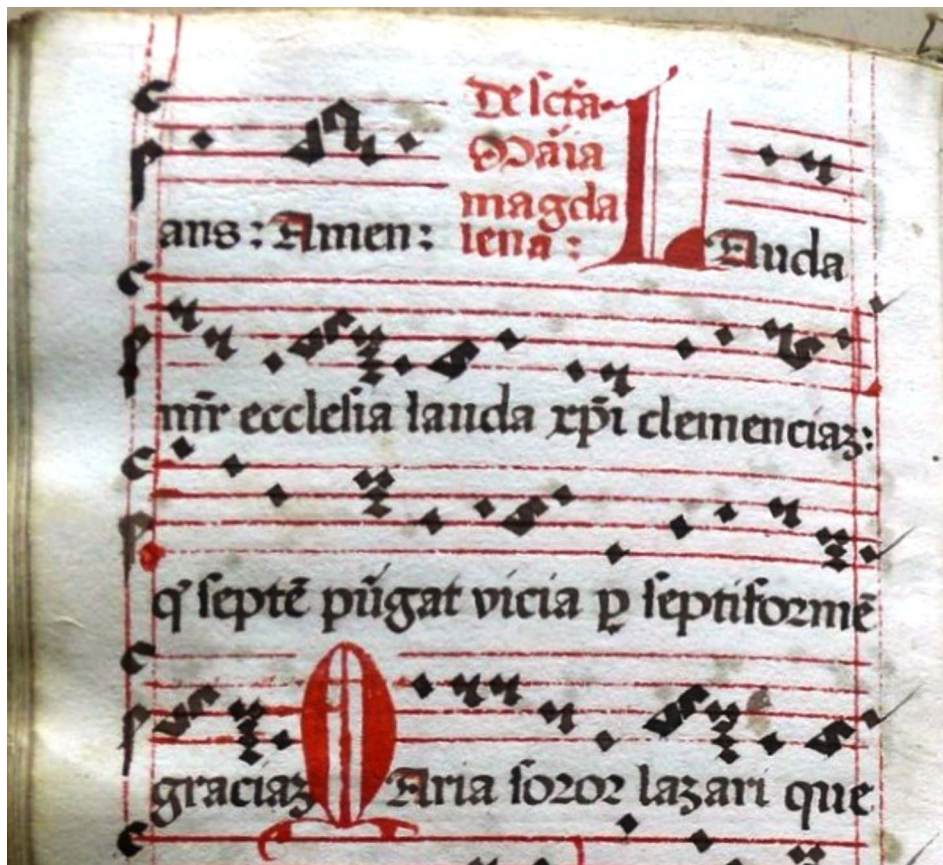 ans: Amen: De scta Maia magda lena: LAuda
mr̄ ecclesia lauda xp̄i clemenciaꝫ:
q septē pūgat vicia ꝑ septiformē
graciaꝫ MAria soror laꝫari que